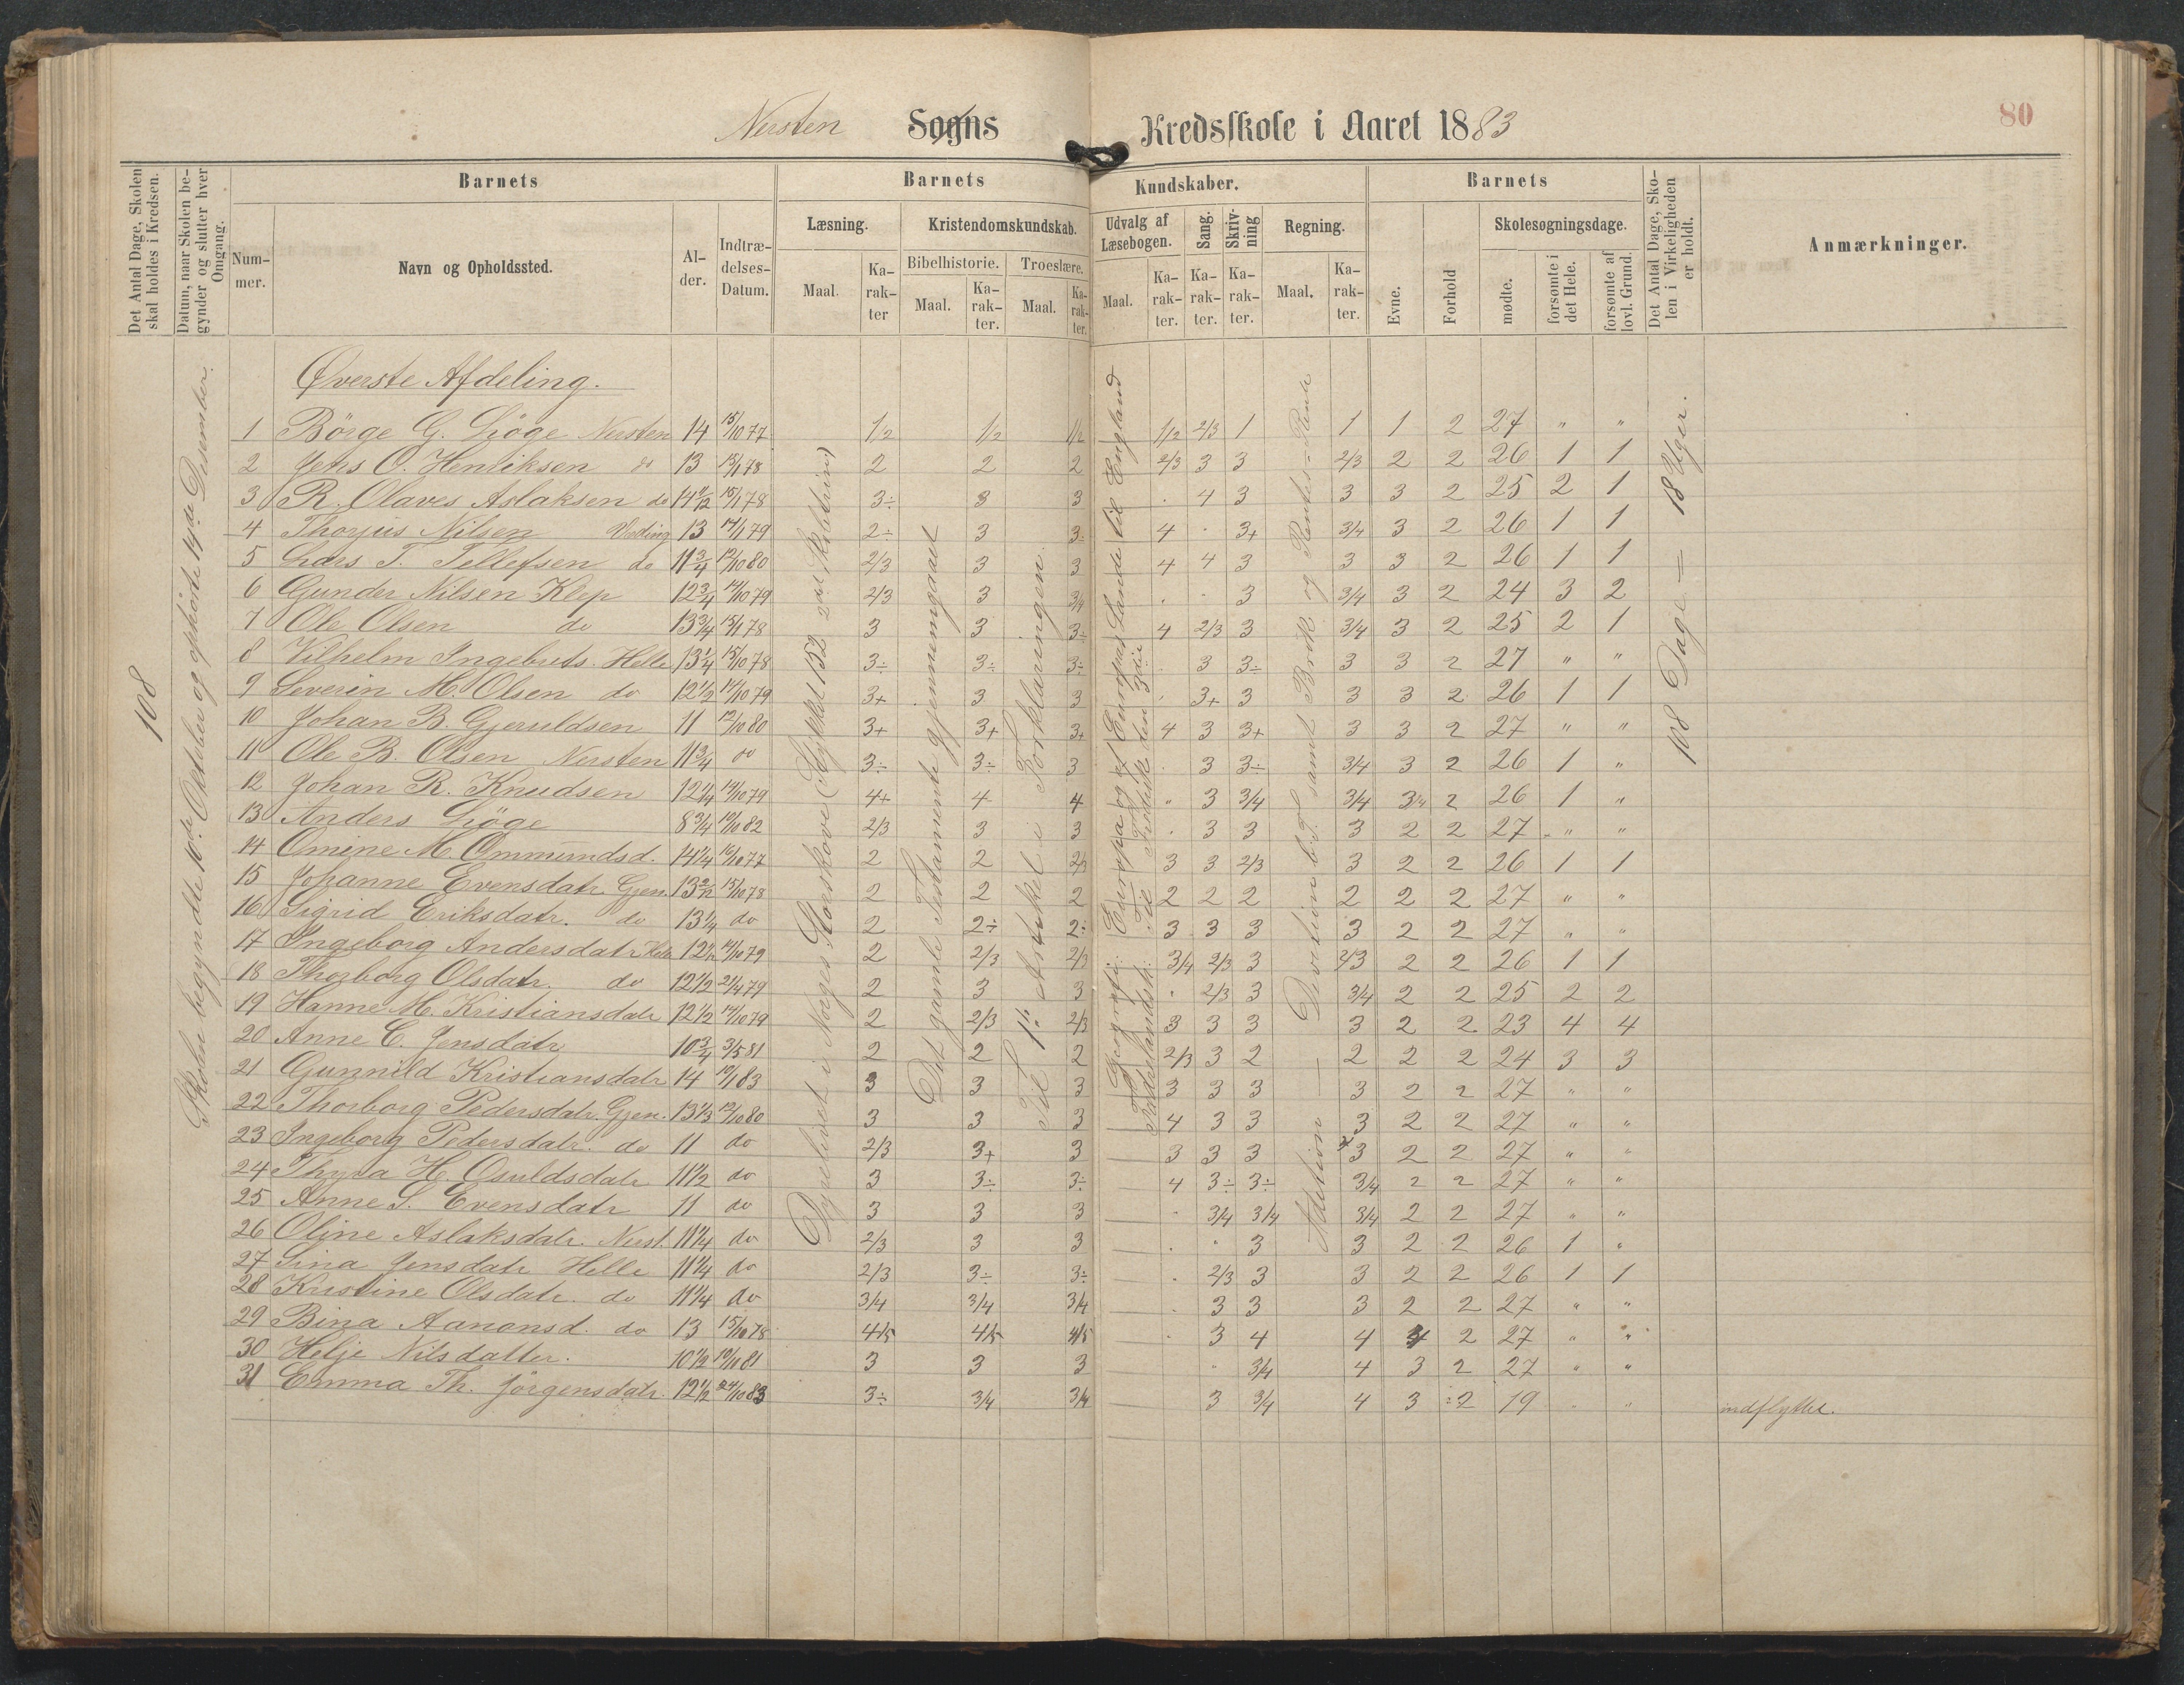 80
Nersten Sogns Kredsskole i Aaret 1883
Det Antal Dage, Skolen skal holdes i Kredsen.
Datum, naar Skolen begynder og slutter hver Omgang.
Barnets
Nummer.
Navn og Opholdssted.
Alder.
Indtrædelses-Datum.
Barnets Kundskaber.
Læsning.
Maal.
Karakter
Kristendomskundskab.
Bibelhistorie.
Maal.
Karakter.
Troeslære.
Maal.
Karakter.
Udvalg af Læsebogen.
Maal.
Karakter.
Sang.
Karakter.
Skrivning
Karakter.
Regning.
Maal.
Karakter.
Barnets
Evne.
Forhold
Skolesøgningsdage.
mødte.
forsømte i det Hele.
forsømte af lovl. Grund.
Det Antal Dage, Skolen i Virkeligheden er holdt.
Anmærkninger.
108
Skolen begyndte 10de Oktober og ophørte 14de Desember.
Dyrelivet i Norges Storskove (Stykket 152 2det Skoletrin)
Det gamle Testamente gjennemgaaet
Til 1ste Artikel i Forklaringen.
Geografi: Europa og af Europas Lande til England
Fædrelandsh: Til Frode den 3die
Addition — Division b.T. samt Brøk og Rentes-Rente
108 Dage = 18 Uger.
Øverste Afdeling.
1 Børge G. Liøge Nersten 14 15/10 77 1/2 1/2 1/2 1/2 2/3 1 1 1 2 27 " "
2 Jens O. Henriksen do 13 15/1 78 2 2 2 2/3 3 3 2/3 2 2 26 1 1
3 R. Olaves Aslaksen do 14 2/12 15/1 78 3÷ 3 3 . 4 3 3 3 2 25 2 1
4 Thorjus Nilsen 13 14/1 79 2÷ 3 3÷ 4 . 3+ 3/4 3 2 26 1 1
5 Lars T. Tellefsen do 11 3/4 12/10 80 2/3 3 3 4 4 3 3 3 2 26 1 1
6 Gunder Nilsen Klep 12 3/4 14/10 79 2/3 3 3/4 . . 3 3/4 3 2 24 3 2
7 Ole Olsen do 13 3/4 15/1 78 3 3 3÷ 4 2/3 3 3/4 3 2 25 2 1
8 Vilhelm Ingebrets. Helle 13 1/4 15/10 78 3÷ 3÷ 3÷ . 3 3÷ 3 3 2 27 " "
9 Severin M. Olsen do 12 1/2 14/10 79 3+ 3 3 . 3+ 3 3 3 2 26 1 1
10 Johan B. Gjeruldsen 11 12/10 80 3+ 3+ 3+ 4 3 3+ 3 3 2 27 " "
11 Ole B. Olsen Nersten 11 3/4 do 3÷ 3÷ 3 . 3 3÷ 3/4 3 2 26 1 "
12 Johan R. Knudsen 12 1/4 14/10 79 4+ 4 4 " 3 3/4 3/4 3/4 2 26 1 "
13 Anders Liøge 8 3/4 10/10 82 2/3 3 3 . 3 3 3 2 2 27 " "
14 Omine M. Ommundsd. 14 1/4 15/10 77 2 2 2/3 3 3 2/3 3 2 2 26 1 1
15 Johanne Evensdatr. Gjen. 13 2/12 15/10 78 2 2 2 2 2 2 2 2 2 27 " "
16 Sigrid Eriksdatr. do 13 1/4 do 2 2÷ 2÷ 3 3 3 3 2 2 27 " "
17 Ingeborg Andersdatr Helle 12 1/2 14/10 79 2 2/3 2/3 3/4 2/3 3 2/3 2 2 26 1 1
18 Thorborg Olsdatr. do 12 1/2 21/4 79 2 3 3 . 2/3 3 3/4 2 2 25 2 2
19 Hanne M. Kristiansdatr 12 1/2 14/10 79 2 2/3 2/3 3 3 3 3 2 2 23 4 4
20 Anne C. Jensdatr 10 3/4 3/5 81 2 2 2 2/3 3 2 2 2 2 24 3 3
21 Gunnild Kristiansdatr 14 10/1 83 3 3 3 3 3 3 3 2 2 27 " "
22 Thorborg Pedersdatr. Gjen. 13 1/3 12/10 80 3 3 3 4 3 3 3 2 2 27 " "
23 Ingeborg Pedersdatr. do 11 do 2/3 3+ 3 3 3 3 3 2 2 27 " "
24 Thyra H. Osuldsdatr 11 1/2 do 3 3÷ 3÷ 4 3÷ 3÷ 3/4 2 2 27 " "
25 Anne S. Evensdatr 11 do 3 3 3 . 3/4 3/4 3/4 2 2 27 " "
26 Oline Aslaksdatr. Nerst. 11 1/4 do 2/3 3 3 . . 3 3 2 2 26 1 "
27 Sina Jensdatr Helle 11 1/4 do 2/3 3÷ 3÷ . 2/3 3 3 2 2 26 1 1
28 Kristine Olsdatr. do 11 1/4 do 3/4 3/4 3/4 . 3 3 3 2 2 27 " "
29 Bina Aanonsd. do 13 15/10 78 4/5 4/5 4/5 . 3 4 4 4 2 27 " "
30 Helje Nilsdatter. 10 1/2 19/10 81 3 3 3 . 3/4 4 3 2 27 " "
31 Emma Th. Jørgensdatr. 12 1/2 24/10 83 3÷ 3/4 3/4 3 3/4 4 3 2 19 . " indflyttet.